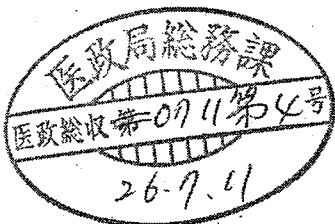 医政局総務課
医政総収第0711第4号
26.7.11